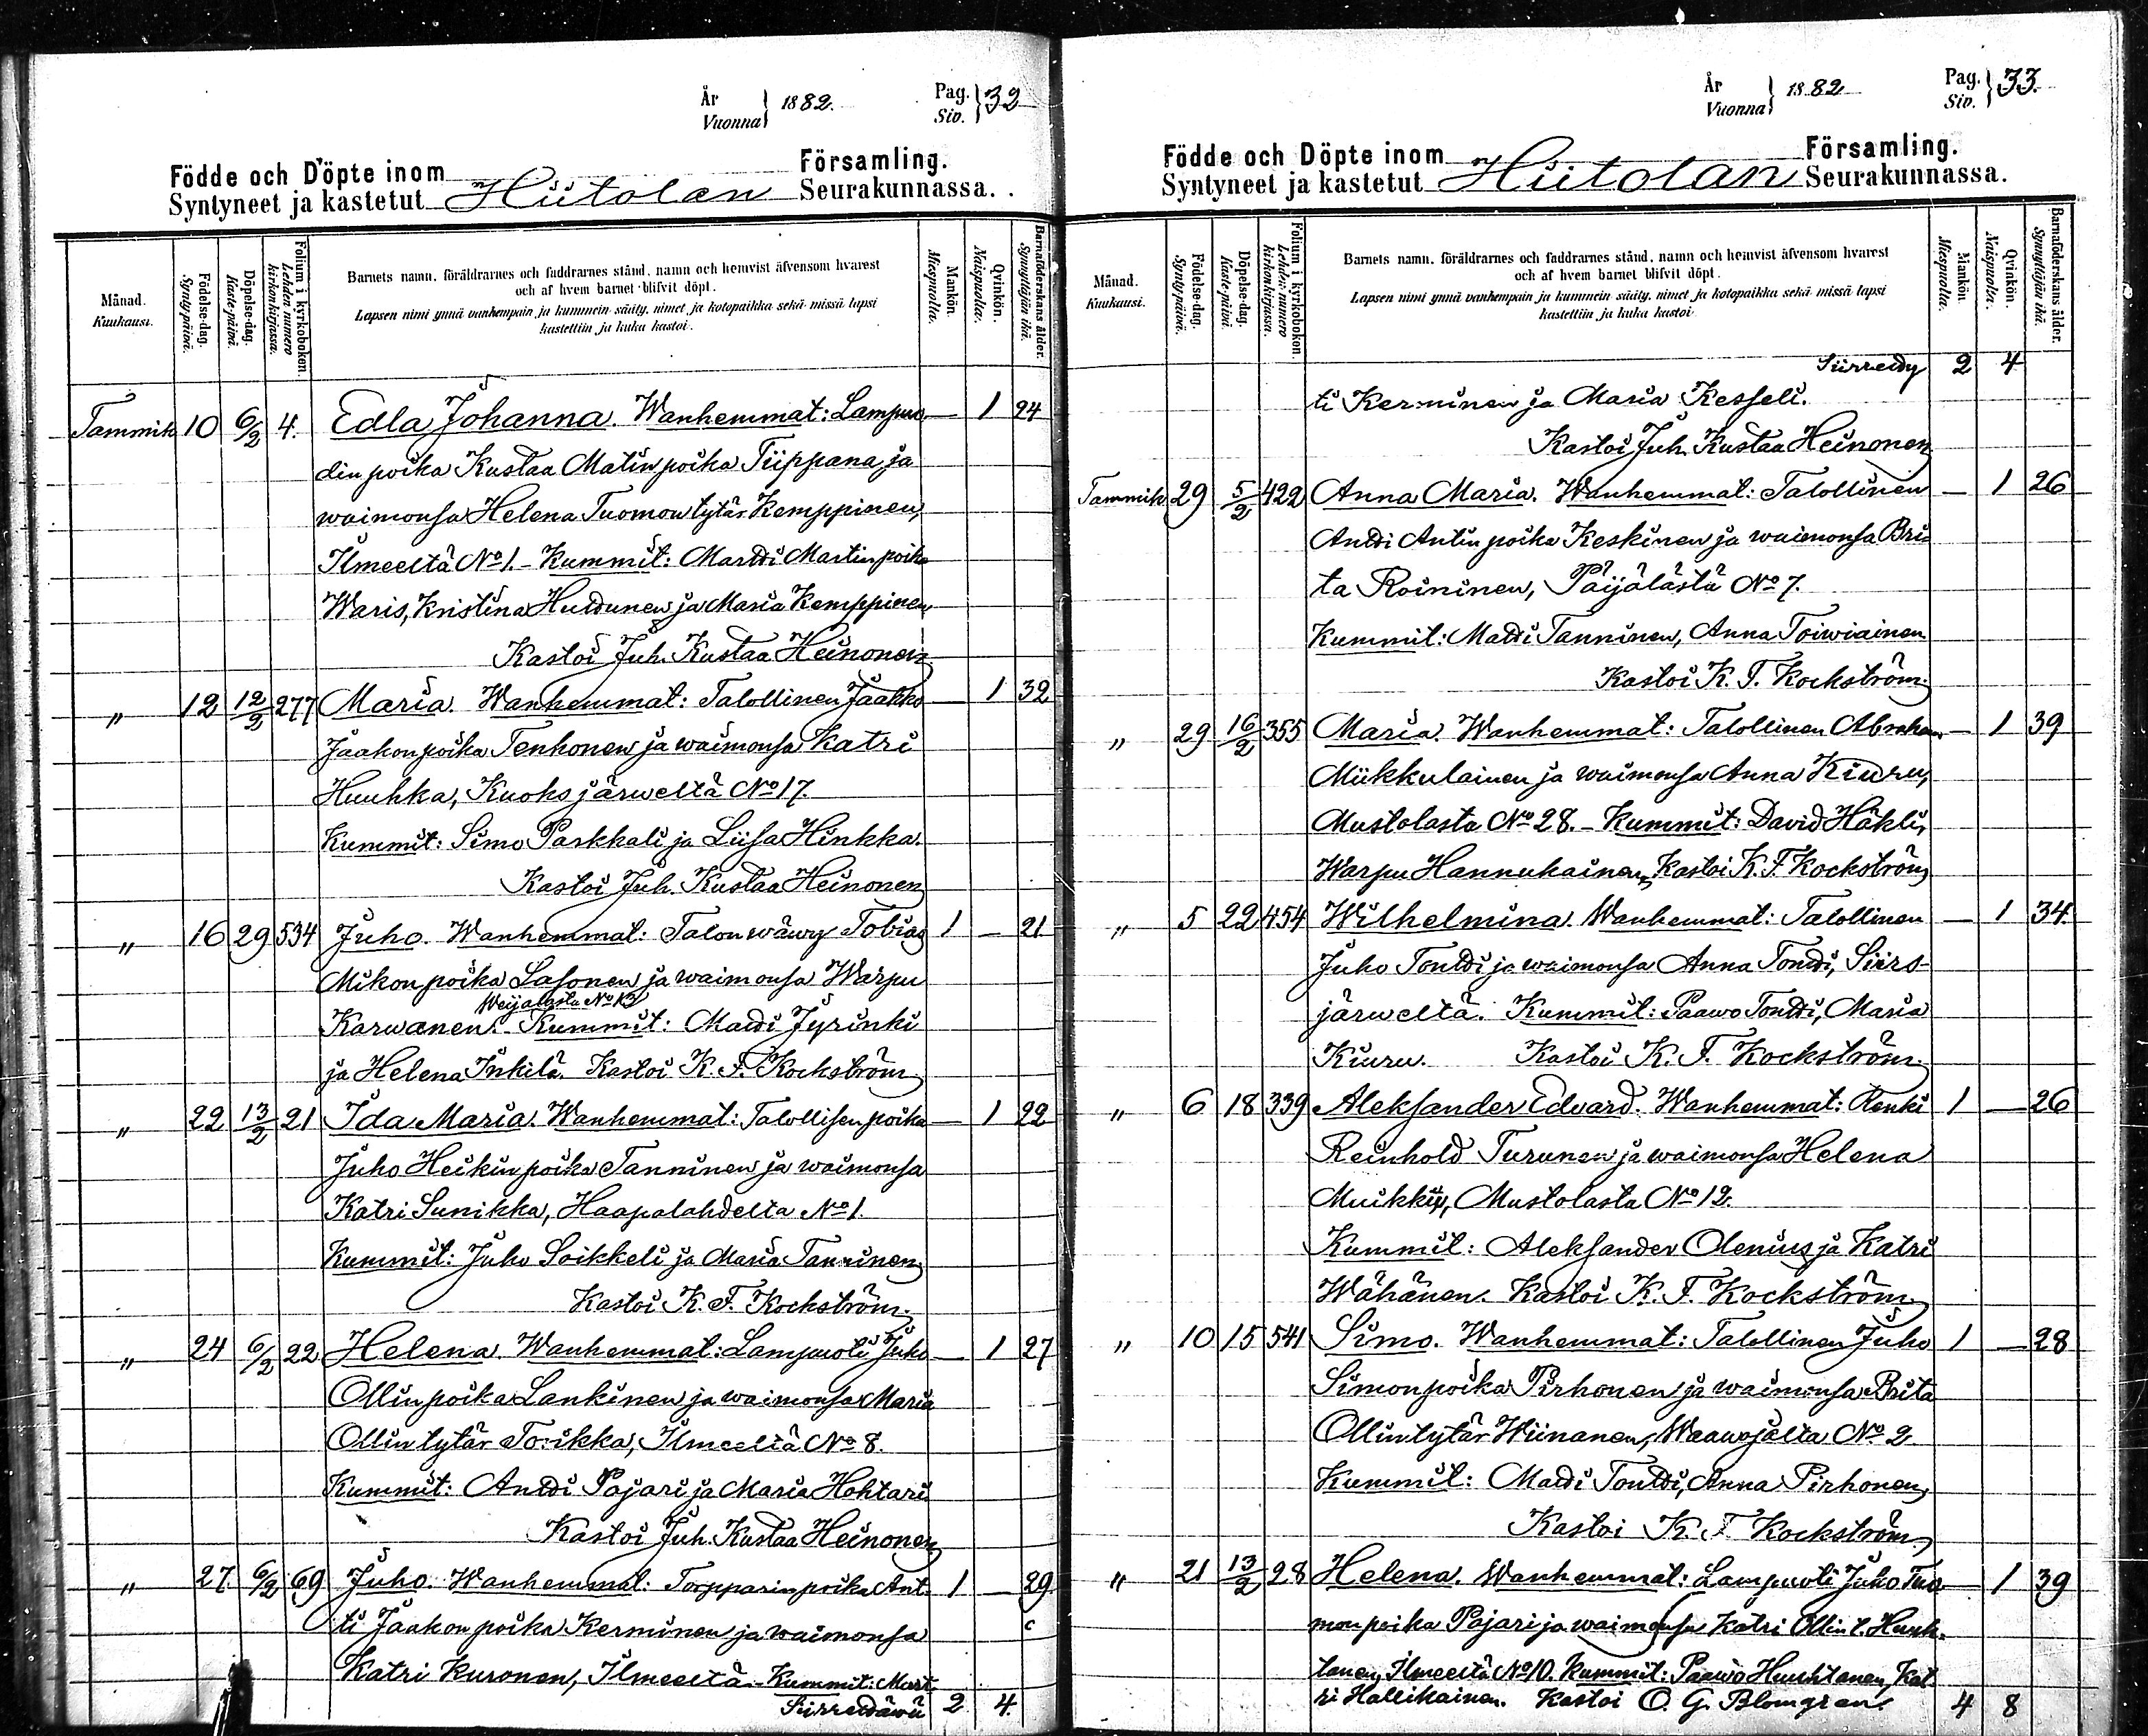 År
Vuonna } 1882.
Pag.
Siv. } 32
Födde och Döpte inom
Syntyneet ja kastetut Hiitolan
Församling.
Seurakunnassa.
Månad.
Kuukausi.
Födelse-dag.
Synty-päivä.
Döpelse-dag.
Kaste-päivä.
Folium i kyrkoboken.
Lehden numero
kirkonkirjassa.
Barnets namn, föräldrarnes och faddrarnes stånd, namn och hemvist äfvensom hvarest
och af hvem barnet blifvit döpt.
Lapsen nimi ynnä vanhempain ja kummein sääty, nimet ja kotopaikka sekä missä lapsi
kastettiin ja kuka kastoi.
Mankön.
Miespuolta.
Qvinkön.
Naispuolta.
Barnaföderskans ålder.
Synnyttäjän ikä.
Tammik 10 6/2 4. Edla Johanna. Wanhemmat: Lampuo- — 1 24
din poika Kustaa Matinpoika Tiippana ja
waimonsa Helena Tuomon tytär Kemppinen,
Ilmeeltä No 1. - Kummit: Martti Martinpoika
Waris, Kristina Huttunen ja Maria Kemppinen,
Kastoi Juh. Kustaa Heinonen
" 12 12/2 277 Maria. Wanhemmat: Talollinen Jaakko — 1 32
Jaakonpoika Tenhonen ja waimonsa Katri
Huuhka, Kuoksjärweltä No 17.
Kummit: Simo Paskkali ja Liisa Hinkka.
Kastoi Juh. Kustaa Heinonen
" 16 29 534 Juho. Wanhemmat: Talonwäwy Tobias 1 — 21
Mikonpoika Lasonen ja waimonsa Warpu
Weijalasta No 13
Karwanen. - Kummit: Matti Jyrinki
ja Helena Inkilä. Kastoi K. F. Kockström
" 22 13/2 21 Ida Maria. Wanhemmat: Talollisen poika — 1 22
Juho Heikinpoika Tanninen ja waimonsa
Katri Sunikka, Haapalahdelta No 1.
Kummit: Juho Soikkeli ja Maria Tanninen
Kastoi K. F. Kockström.
" 24 6/2 22 Helena. Wanhemmat: Lampuoti Juho — 1 27
Ollinpoika Lankinen ja waimonsa Maria
Ollin tytär Torikka, Ilmeeltä No 8.
Kummit: Antti Pajari ja Maria Hohtari
Kastoi Juh. Kustaa Heinonen
" 27. 6/2 69 Juho. Wanhemmat: Torpparinpoika Ant- 1 — 29
ti Jaakonpoika Kerminen ja waimonsa
Katri Kuronen, Ilmeeltä. - Kummit: Mart-
Siirrettäwä 2 4.
År
Vuonna } 1882
Pag.
Siv. } 33.
Födde och Döpte inom
Syntyneet ja kastetut Hiitolan
Församling.
Seurakunnassa.
Månad.
Kuukausi.
Födelse-dag.
Synty-päivä.
Döpelse-dag.
Kaste-päivä.
Folium i kyrkoboken.
Lehden numero
kirkonkirjassa.
Barnets namn, föräldrarnes och faddrarnes stånd, namn och hemvist äfvensom hvarest
och af hvem barnet blifvit döpt.
Lapsen nimi ynnä vanhempain ja kummein sääty, nimet ja kotopaikka sekä missä lapsi
kastettiin ja kuka kastoi.
Mankön.
Miespuolta.
Qvinkön.
Naispuolta.
Barnaföderskans ålder.
Synnyttäjän ikä.
Siirretty 2 4
ti Kerminen ja Maria Kesseli.
Kastoi Juh. Kustaa Heinonen
Tammik 29 5/2 422 Anna Maria. Wanhemmat: Talollinen — 1 26
Antti Antinpoika Keskinen ja waimonsa Bri-
ta Roininen, Päijälästä No 7.
Kummit: Matti Tanninen, Anna Toiwiainen
Kastoi K. F. Kockström.
" 29 16/2 355 Maria. Wanhemmat: Talollinen Abraham — 1 39
Miikkulainen ja waimonsa Anna Kiuru,
Mustolasta No 28. - Kummit: David Häkli,
Warpu Hannukainen, Kastoi K. F. Kockström
" 5 22 454 Wilhelmina. Wanhemmat: Talollinen — 1 34.
Juho Tontti ja waimonsa Anna Tontti, Siiro-
järweltä. Kummit: Paawo Tontti, Maria
Kiuru. Kastoi K. F. Kockström.
" 6 18 339 Aleksander Edvard. Wanhemmat: Renki 1 — 26
Reinhold Turunen ja waimonsa Helena
Muikku, Mustolasta No 12.
Kummit: Aleksander Olenius ja Katri
Wähänen. Kastoi K. F. Kockström.
" 10 15 541 Simo. Wanhemmat: Talollinen Juho 1 — 28
Simonpoika Pirhonen ja waimonsa Brita
Ollintytär Wiinanen, Waawojalta No 2.
Kummit: Matti Tontti, Anna Pirhonen,
Kastoi K. F. Kockström,
" 21 13/2 28 Helena. Wanhemmat: Lampuoti Juho Tuo- — 1 39
monpoika Pajari ja waimonsa Katri Ollin t. Huuh-
tanen, Ilmeeltä No 10. Kummit: Paawo Huuhtanen, Kat-
ri Hallikainen. Kastoi O. G. Blomgren. 4 8